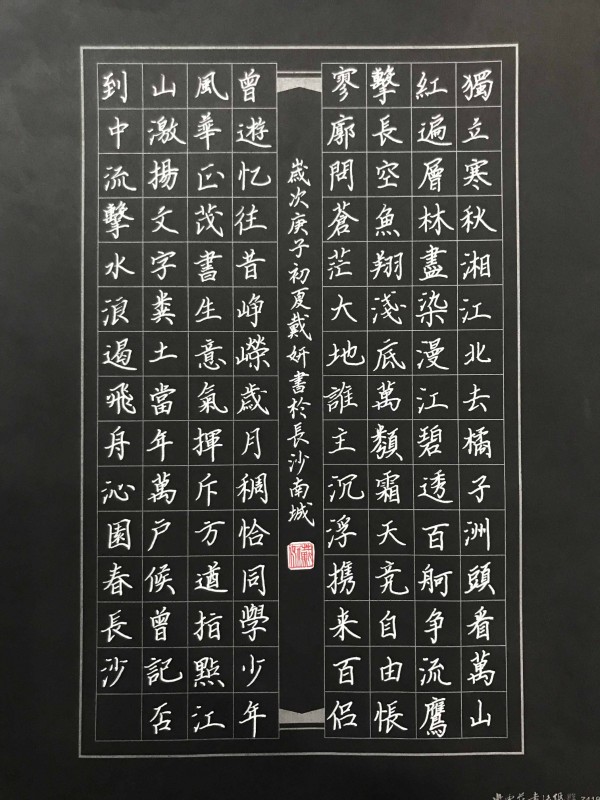 獨立寒秋湘江北去橘子洲頭看萬山
紅遍層林盡染漫江碧透百舸争流鷹
擊長空魚翔淺底萬類霜天竞自由悵
寥廓問蒼茫大地誰主沉浮携来百侣
歲次庚子初夏戴妍書於長沙南城
曾遊忆往昔崢嶸歲月稠恰同學少年
風華正茂書生意氣揮斥方遒指點江
山激揚文字糞土當年萬户候曾記否
到中流擊水浪遏飛舟沁園春長沙